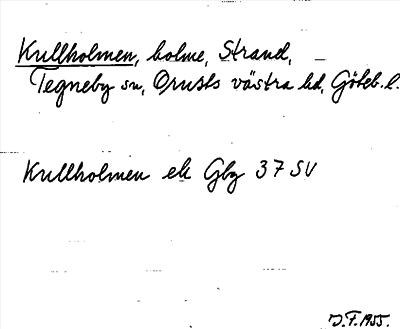 Kullholmen, holme, Strand,
Tegneby sn, Orusts västra hd, Göteb. l.
Kullholmen ek Gbg 37 SV
J. F. 1955.